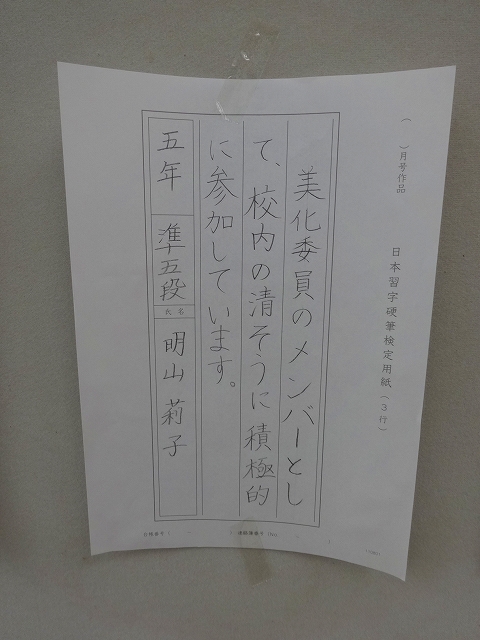 ( )月号作品
日本習字硬筆検定用紙(3行)
美化委員のメンバーとし
て、校内の清そうに積極的
に参加しています。
五年 準五段 氏名 明山莉子